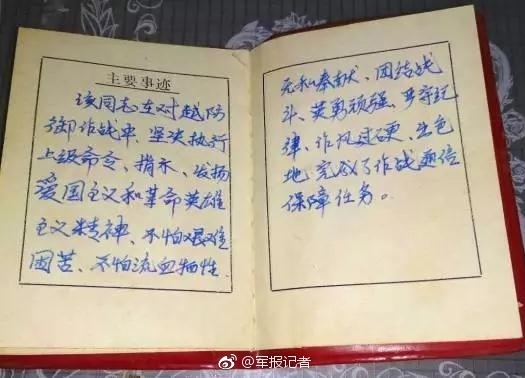 主要事迹
该同志在对越防
御作战中、坚决执行
上级命令、指示、发扬
爱国主义和革命英雄
主义精神、不怕艰难
困苦、不怕流血牺牲、
无私奉献、团结战
斗、英勇顽强、严守纪
律、作风过硬、出色
地完成了作战通信
保障任务。
@军报记者